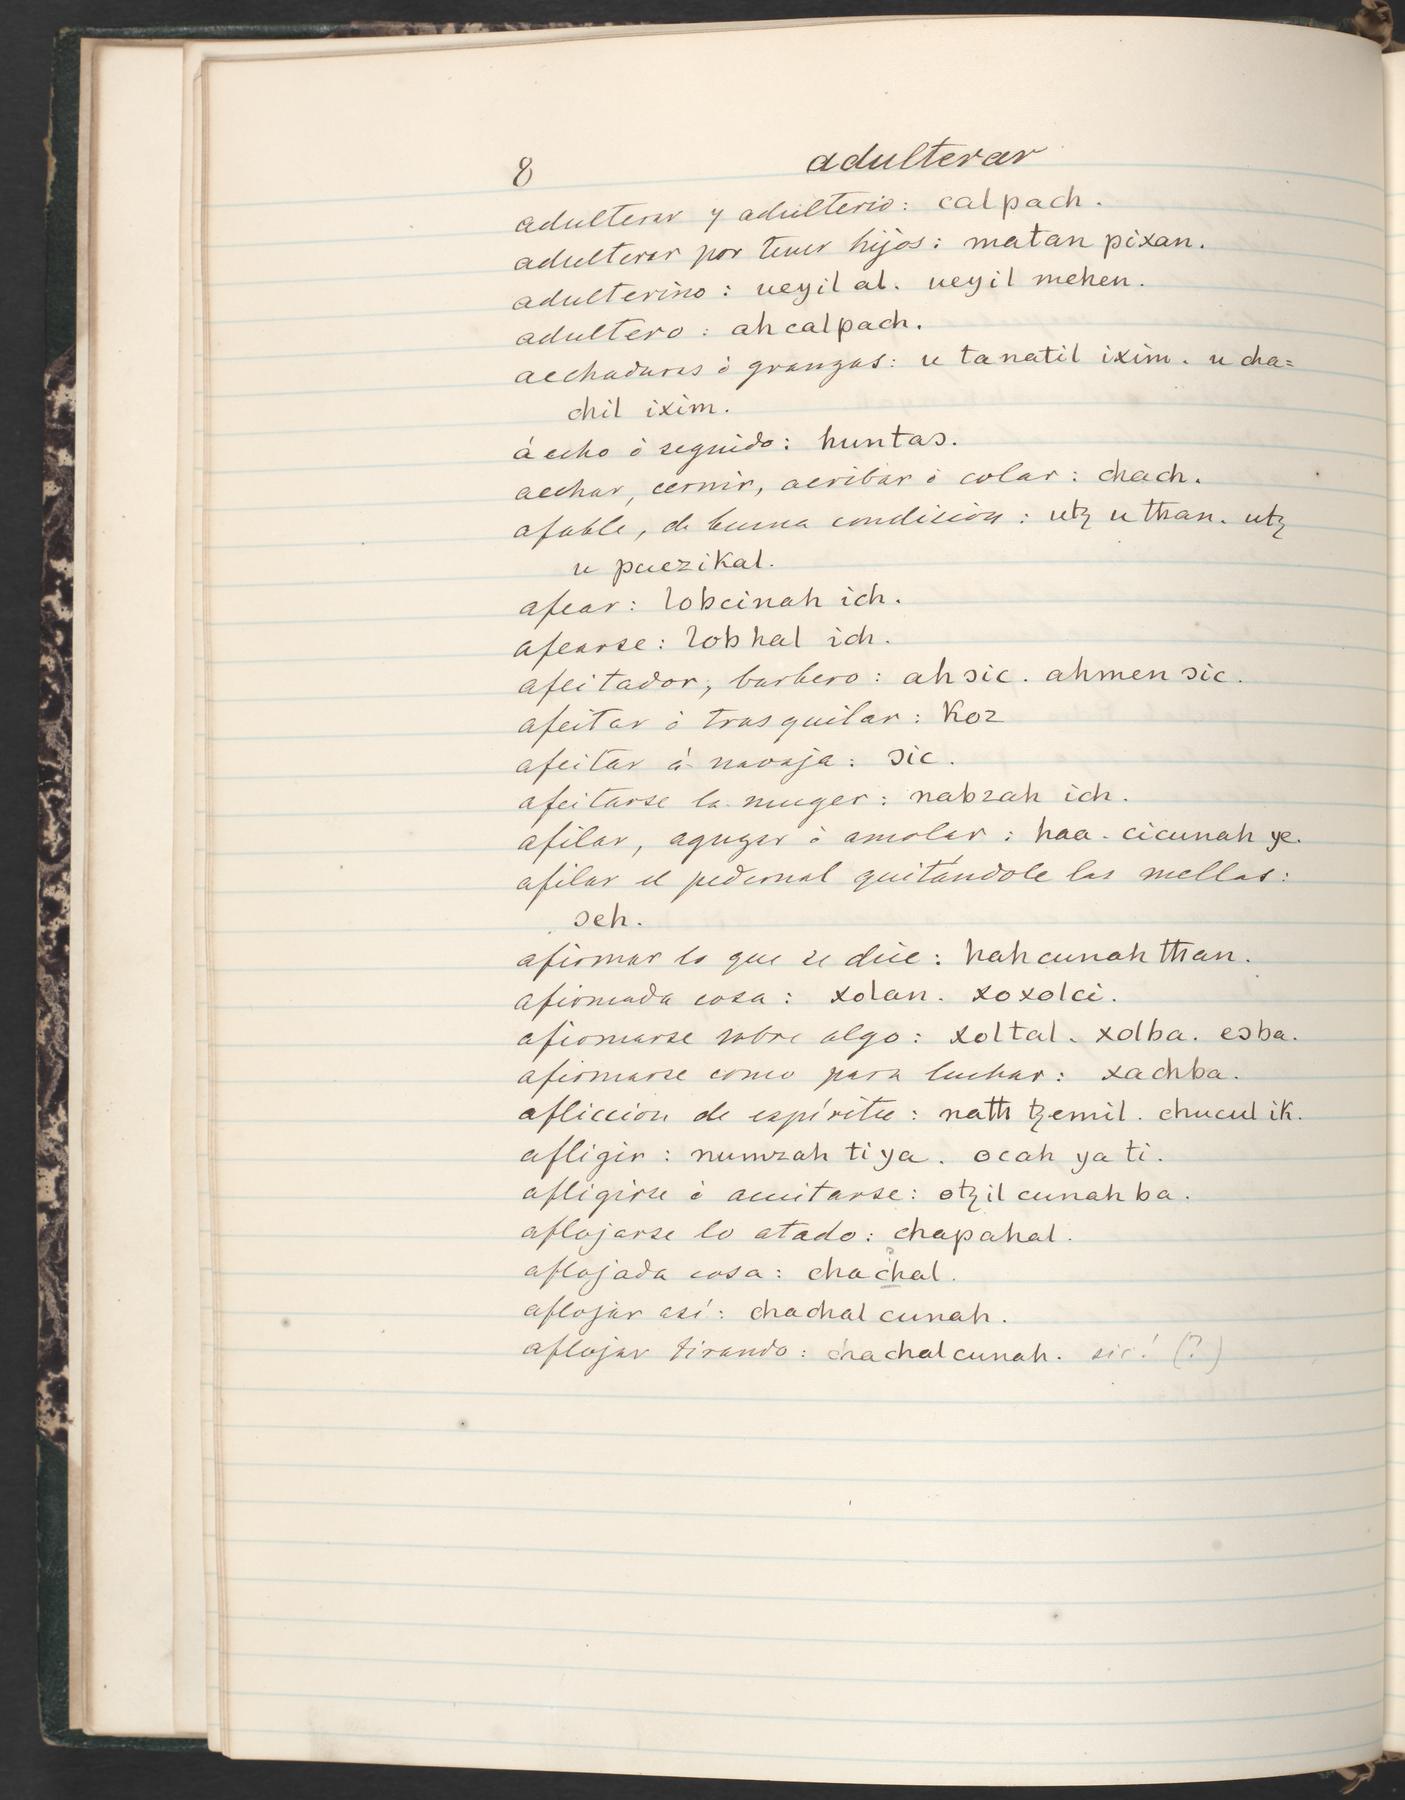 8 adulterar
adulterar y adulterio: calpach.
adulterar por tener hijos: matan pixan.
adulterino: ueyil al. ueyil mehen.
adultero: ah calpach.
aechaduras ó granzas: u tanatil ixim. u cha=
chil ixim.
á echo ó seguido: huntaɔ.
aechar, cernir, acribar ó colar: chach.
afable, de buena condicion: utꜩ u than. utꜩ
u puczikal.
afear: lobcinah ich.
afearse: lobhal ich.
afeitador, barbero: ah ɔic. ahmen ɔic.
afeitar ó trasquilar: Koz
afeitar á navaja: ɔic.
afeitarse la muger: nabzah ich.
afilar, aguzar ó amolar: haa. cicunah ye.
afilar el pedernal quitándole las mellas:
ɔeh.
afirmar lo que se dice: hahcunah than.
afirmada cosa: xolan. xoxolci.
afirmarse sobre algo: xoltal. xolba. eɔba.
afirmarse como para luchar: xachba.
afliccion de espíritu: nath ꜩemil. chucul ik.
afligir: numzah ti ya. ocah ya ti.
afligirse ó acuitarse: otꜩil cunah ba.
aflojarse lo atado: chapahal.
aflojada cosa: chachal.
aflojar así: chachal cunah.
aflojar tirando: chachalcunah. sic! (?)